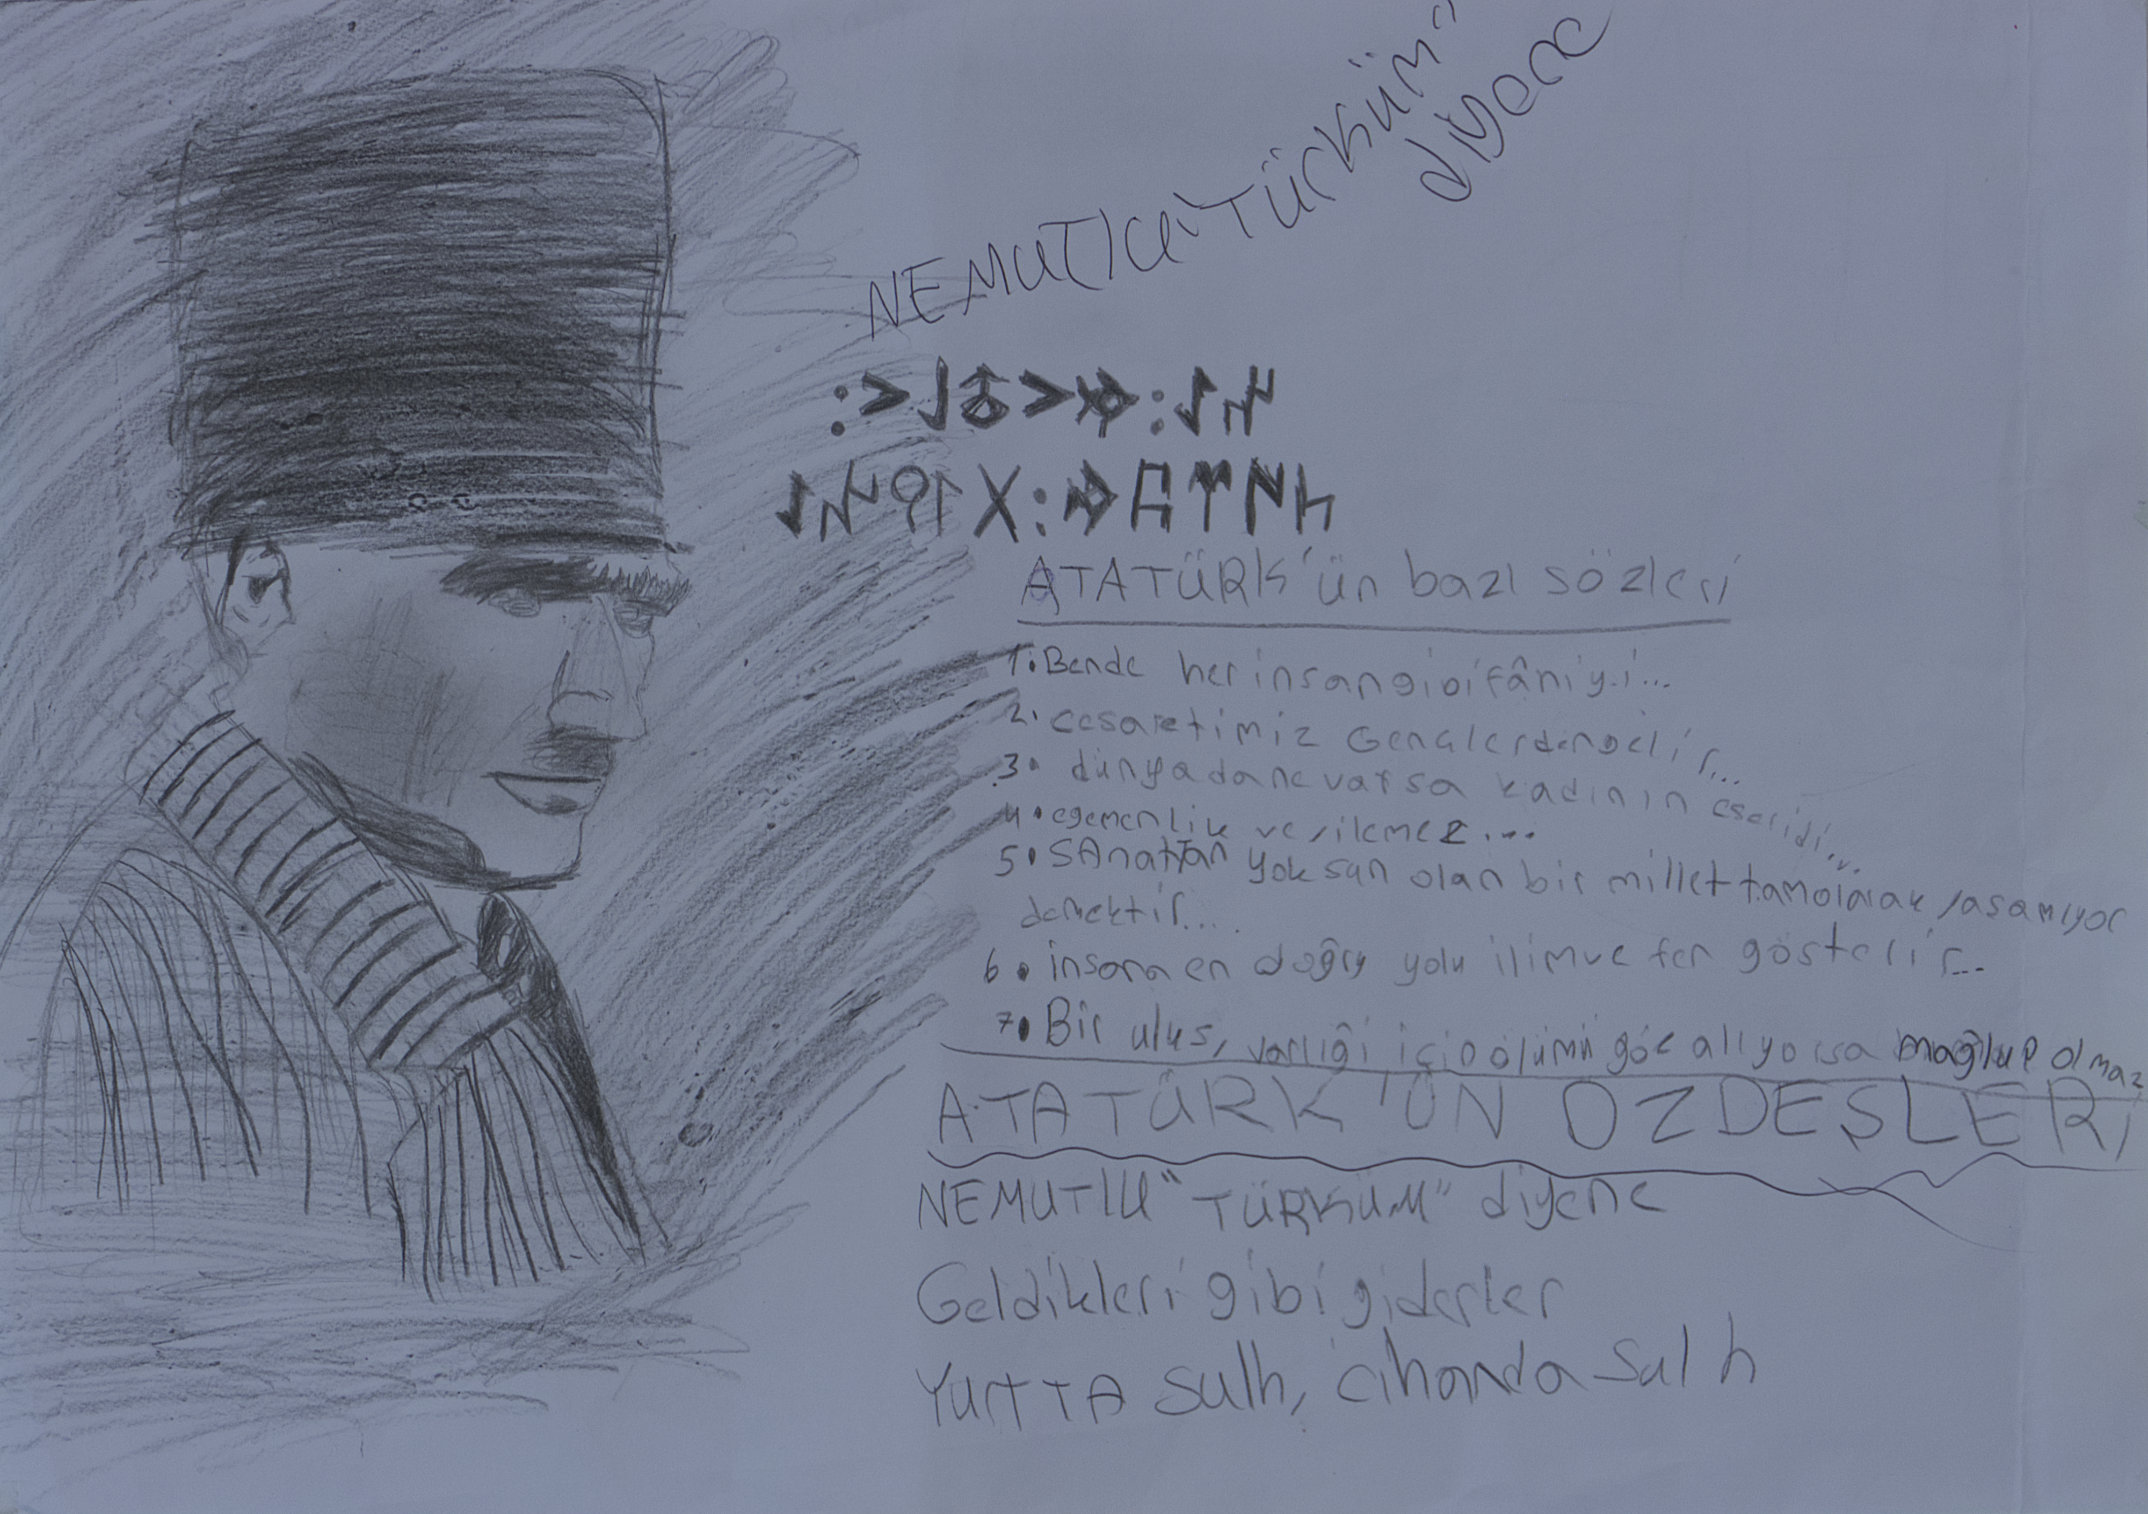 NEMUTlu "TÜrkÜm"
diyene
ATATÜRK'ün bazı sözleri
1. Bende her insan gibi fâniyi...
2. cesaretimiz Gençlerdengelir...
3. dünyada ne varsa kadının eseridir...
4. egemenlik verilemez...
5. SAnattan yoksun olan bir millet tamolarak yaşamıyor
demektir....
6. insana en doğru yolu ilimve fen gösterir...
7. Bir ulus, varlığı için ölümü göze alıyorsa mağlup olmaz
ATATÜRK'ÜN ÖZDEŞLERİ
NEMUTlu "TÜRKÜM" diyene
Geldikleri gibi giderler
YurTTA Sulh, cihanda Sulh